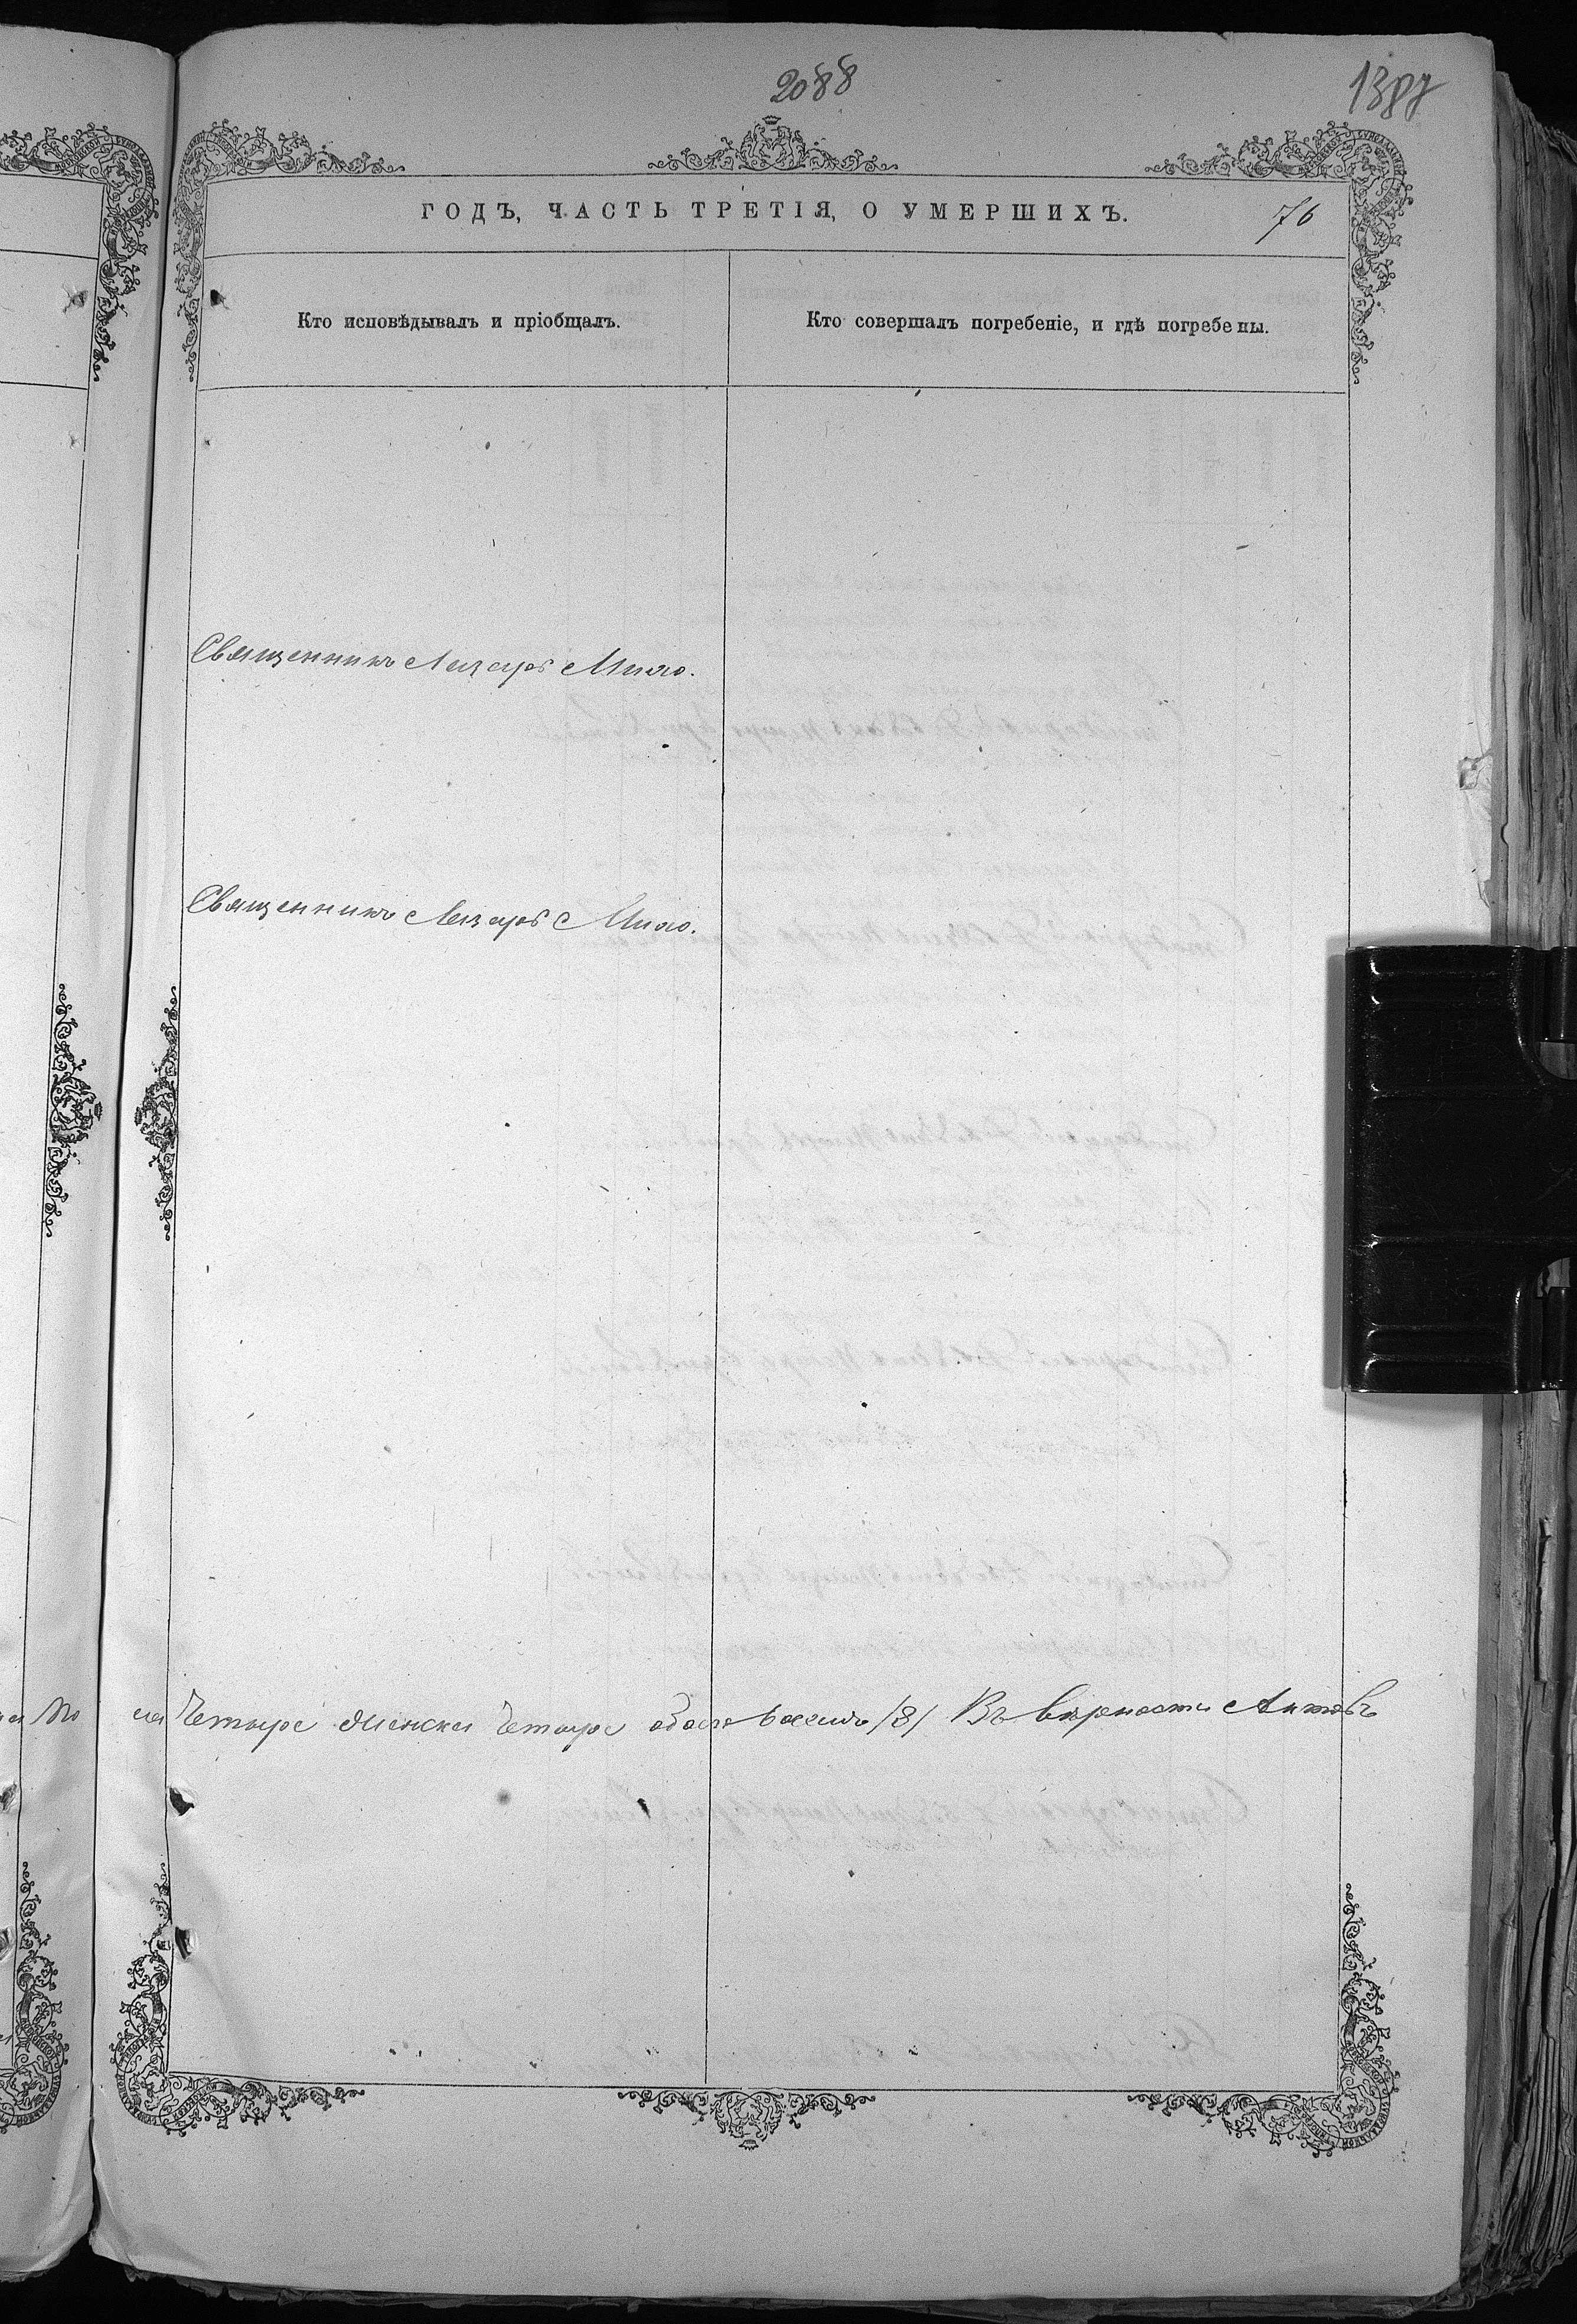 2088
1387
ГОДЪ, ЧАСТЬ ТРЕТІЯ, О УМЕРШИХЪ.
76
Кто исповѣдывалъ и пріобщалъ.
Кто совершалъ погребеніе, и гдѣ погребены.
Священникъ Лазарь
Священникъ Лазарь
Четыре женска четыре обоего восемь /8/ Въ вѣрности Актовъ